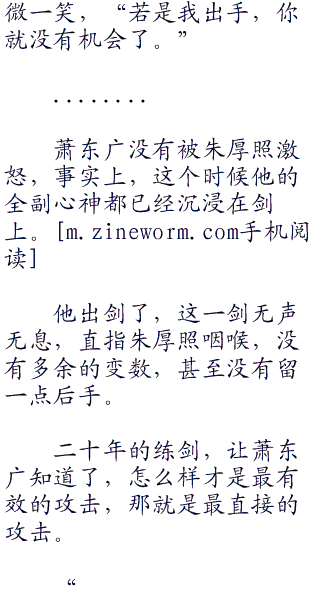 微一笑，“若是我出手，你
就没有机会了。”
........
萧东广没有被朱厚照激
怒，事实上，这个时候他的
全副心神都已经沉浸在剑
上。[m.zineworm.com手机阅
读]
他出剑了，这一剑无声
无息，直指朱厚照咽喉，没
有多余的变数，甚至没有留
一点后手。
二十年的练剑，让萧东
广知道了，怎么样才是最有
效的攻击，那就是最直接的
攻击。
“